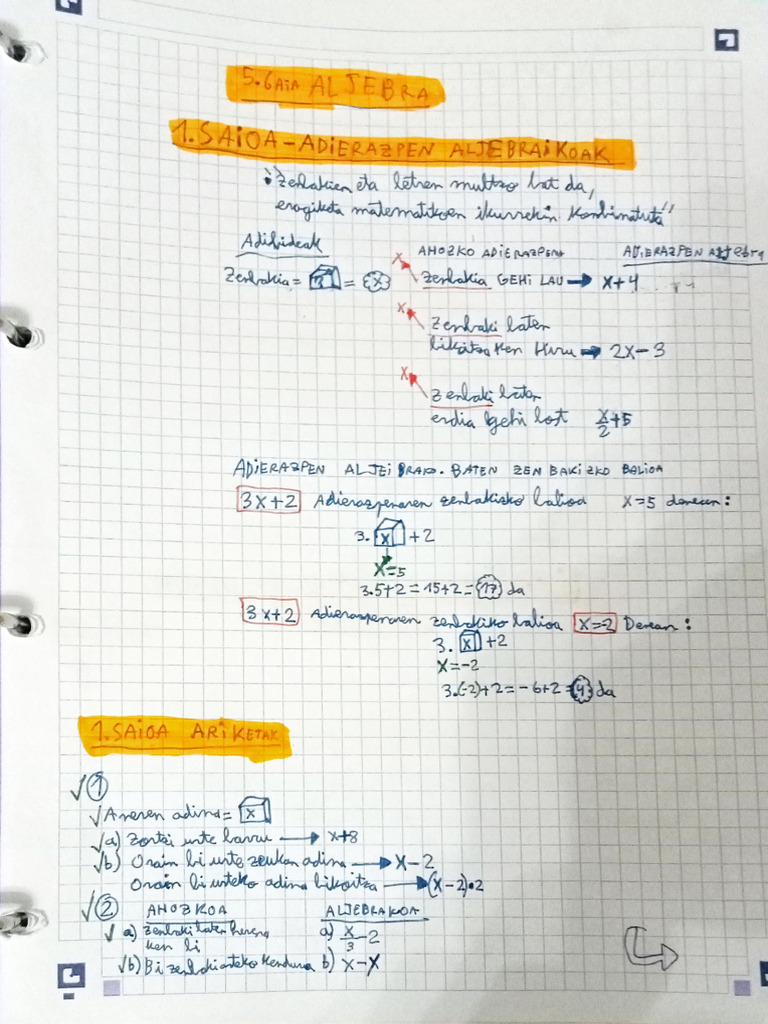 5.GAIA ALJEBRA
1.SAIOA-ADIERAZPEN ALJEBRAIKOAK
"Zenbakien eta letren multzo bat da,
eragiketa matematikoen ikurrekin konbinatuta"
Adibideak
Zenbakia = = x
AHOZKO ADIERAZPENA ADIERAZPEN Aljebra
x Zenbakia GEHI LAU → x+4
x Zenbaki baten
bikoitza ken Hiru → 2x-3
x Zenbaki baten
erdia gehi bost x/2+5
ADIERAZPEN ALJEIBRAKO. BATEN ZENBAKIZKO BALIOA
3x+2 Adierazpenaren zenbakizko balioa x=5 denean:
3. x +2
x=5
3.5+2=15+2=17 da
3x+2 Adierazpenaren zenbakiko balioa x=-2 Denean:
3. x +2
x=-2
3.(-2)+2=-6+2=-4 da
1.SAIOA ARIKETAK
√ 1
√ Aneren adina= x
√a) Zortzi urte barru → x+8
√b) Orain bi urte zeukan adina → x-2
Orain bi urteko adina bikoitza → (x-2)•2
√ 2 AHOZKOA ALJEBRAKOA
√ a) Zenbaki baten herena a) x/3-2
ken bi
√b) Bi zenbaki arteko kendura b) x-x